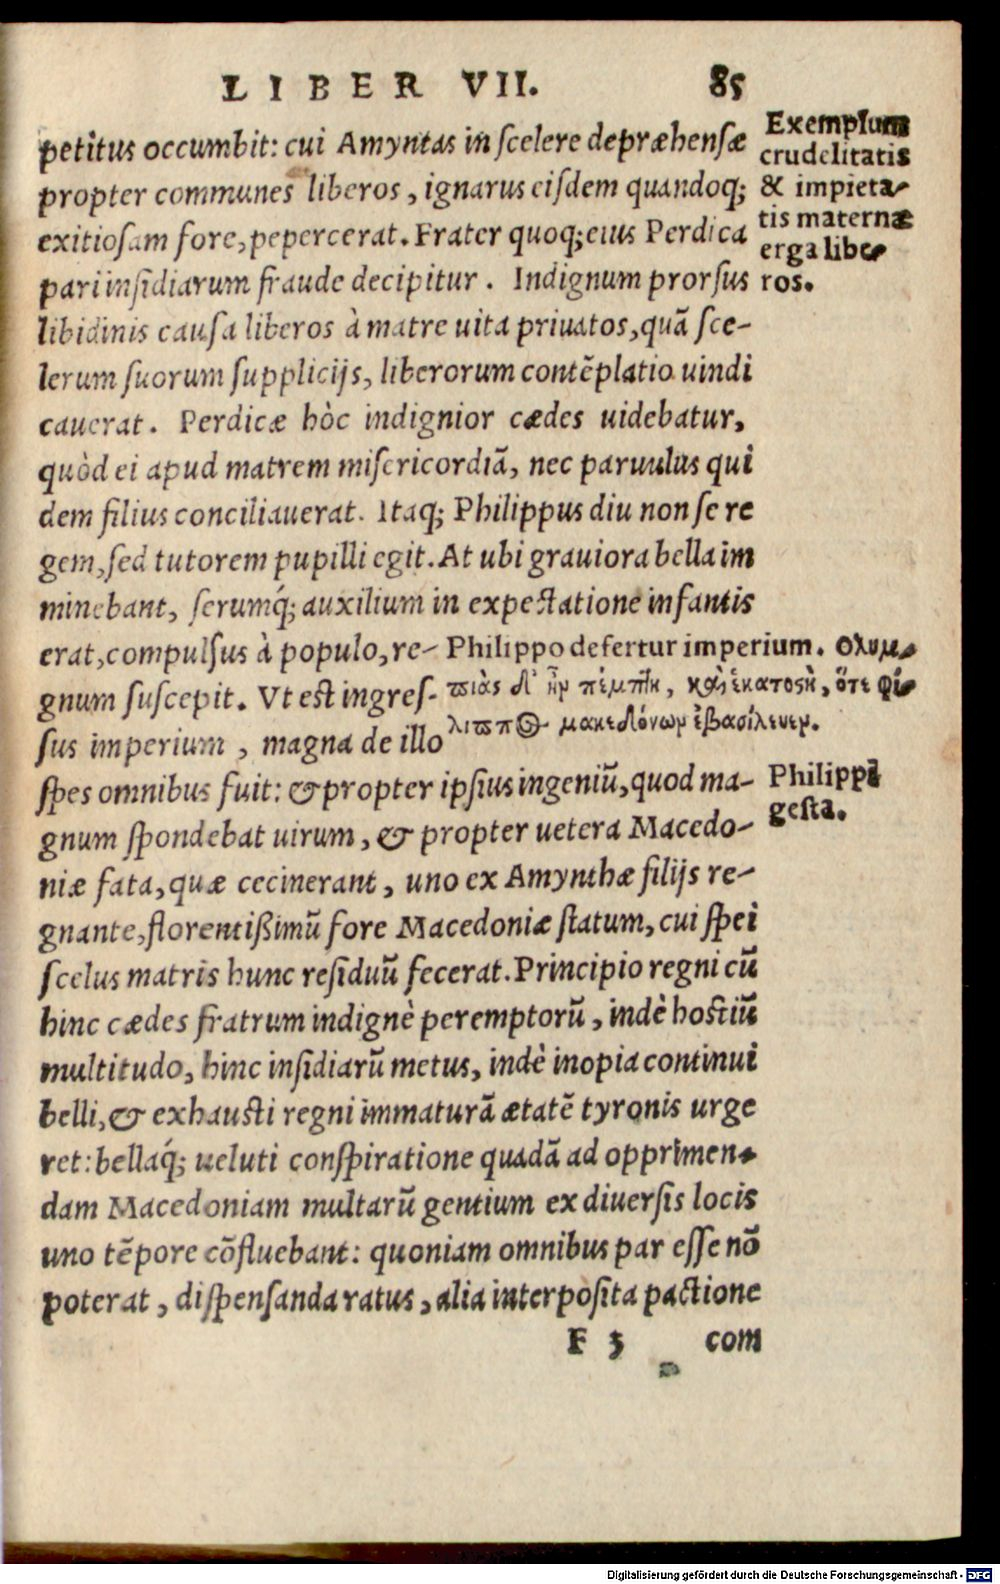 LIBER VII. 85
petitus occumbit: cui Amyntas in scelere depræhensæ
propter communes liberos, ignarus eisdem quandoq;
exitiosam fore, pepercerat. Frater quoq; eius Perdica
pari insidiarum fraude decipitur. Indignum prorsus
libidinis causa liberos à matre uita priuatos, quã sce-
lerum suorum supplicijs, liberorum contẽplatio uindi
cauerat. Perdicæ hòc indignior cædes uidebatur,
quòd ei apud matrem misericordiã, nec paruulus qui
dem filius conciliauerat. Itaq; Philippus diu non se re
gem, sed tutorem pupilli egit. At ubi grauiora bella im
minebant, serumq́; auxilium in expectatione infantis
erat, compulsus à populo, re-
gnum suscepit. Vt est ingres-
sus imperium, magna de illo
spes omnibus fuit: & propter ipsius ingeniũ, quod ma-
gnum spondebat uirum, & propter uetera Macedo-
niæ fata, quæ cecinerant, uno ex Amynthæ filijs re-
gnante, florentißimũ fore Macedoniæ statum, cui spei
scelus matris hunc residuũ fecerat. Principio regni cũ
hinc cædes fratrum indignè peremptorũ, indè hostiũ
multitudo, hinc insidiarũ metus, indè inopia continui
belli, & exhausti regni immaturã ætatẽ tyronis urge
ret: bellaq́; ueluti conspiratione quadã ad opprimen-
dam Macedoniam multarũ gentium ex diuersis locis
uno tẽpore cõfluebant: quoniam omnibus par esse nõ
poterat, dispensanda ratus, alia interposita pactione
F 3 com
Exemplum
crudelitatis
& impieta-
tis maternæ
erga libe-
ros.
Philippo defertur imperium. Ολυμ-
πιὰς δ' ἦν πέμπτη, καὶ ἑκατοςὴ, ὅτε Φί-
λιππος μακεδόνων ἐβασίλευεν.
Philippi
gesta.
Digitalisierung gefördert durch die Deutsche Forschungsgemeinschaft - DFG